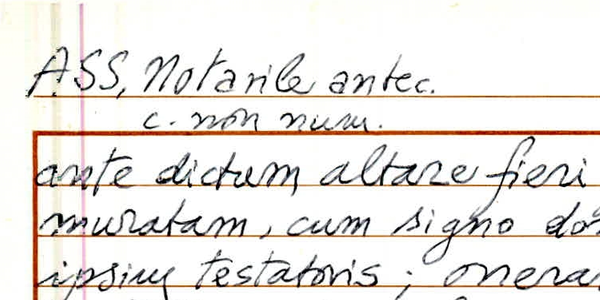 ASS, Notarile antec.
c. non num.
ante dictum altare fieri
muratam, cum signo
ipsius testatoris;